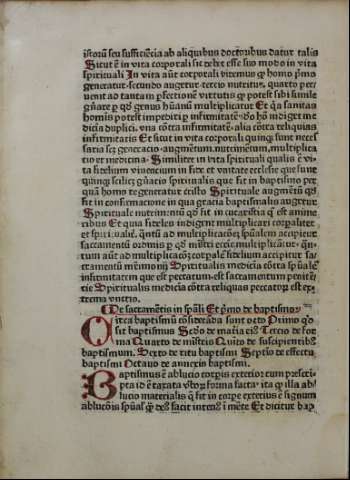 istorū seu sufficiētia ab aliquibus doctoribus datur talis
Sicut ē in vita corporali sic debet esse suo modo in vita
spirituali In vita aūt corporali videmus qꝫ homo pͥmo
generatur secundo augetur tercio nutritur quarto per
uenit ad tantā in pfectione virtutis qꝫ potest sibi simile
gn̄are per qd̓ genus hūanū multiplicatur Et qa sanitas
hominis potest impediri ꝑ infirmitatē iō hō indiget me
dicina duplici. vna cōtra infirmitatē alia cōtra reliquias
infirmitatis Et sicut in vita corporali quinqꝫ sunt neces
saria scꝫ generacio augmentum nutrimentum multiplica
tio et medicina Similiter in vita spirituali qualis ē vi
ta fidelium viuencium in fide et vnitate ecclesie que sunt
quinqꝫ scilicet gracio spiritualis que fit in baptismo per
quā homo regeneratur cristo Spirituale augmētū qd̓
fit in confirmacione in qua gracia baptismalis augetur
Spirituale nutrimentū qd̓ fit in eucaristia qͥ est anime
cibus Et quia fideles indigent multiplicari corꝑaliter
et spiritualiter
sacramentū ordinis ꝑ qd̓ mīstri eccīe multiplicātur
tum aūt ad multiplicacōeꝫ corꝑalē fidelium accipitur sa
cramentū mrīmonij Spiritualis medicina cōtra spūalē
infirmitatem que est peccatum est sacramentum penitē
tie Spiritualis medicina cōtra reliquas peccatoꝝ est ex
trema vnctio.
De sacramētis in spāli Et pͥmo de baptismo
Circa baptismū cōsiderāda sunt octo Primo qd̓
sit baptismus Scd̓o de matīa eiꝰ Tercio de for
ma Quarto de mīstro Quīto de suscipientibꝰ
baptismum. Sexto de ritu baptismi Septīo de effectu
baptismi Octauo de annexis baptismi.
Baptismus ē ablucio corꝑis exterior cum prescri-
pta id ē taxata vrboꝝ forma facta. ita qꝫ illa ab/
lucio materialis qͥ fit in corꝑe exterius ē signum
ablucōis spūal qͣꝫ deꝰ facit interiꝰ ī mēte Et dicitur bap